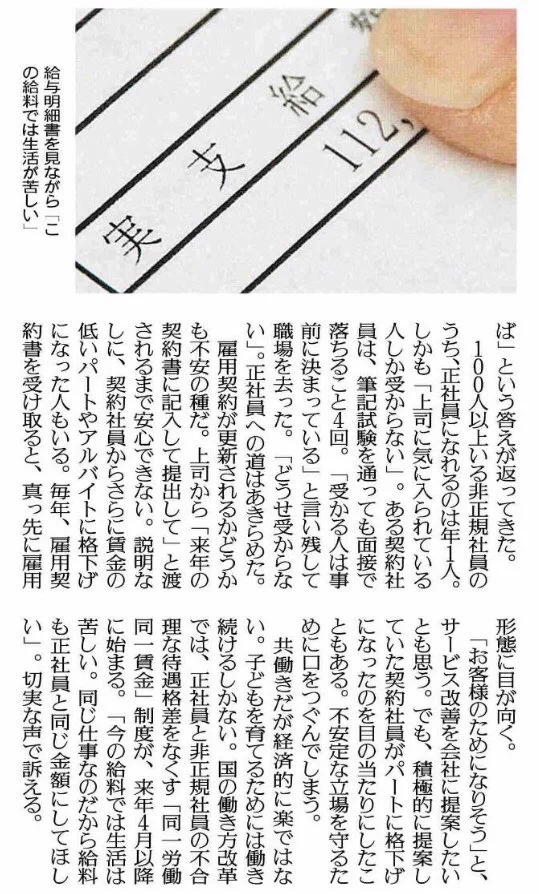 実支給 112,
給与明細書を見ながら「こ
の給料では生活が苦しい」
ば」という答えが返ってきた。
　100人以上いる非正規社員の
うち、正社員になれるのは年1人。
しかも「上司に気に入られている
人しか受からない」。ある契約社
員は、筆記試験を通っても面接で
落ちること4回。「受かる人は事
前に決まっている」と言い残して
職場を去った。「どうせ受からな
い」。正社員への道はあきらめた。
　雇用契約が更新されるかどうか
も不安の種だ。上司から「来年の
契約書に記入して提出して」と渡
されるまで安心できない。説明な
しに、契約社員からさらに賃金の
低いパートやアルバイトに格下げ
になった人もいる。毎年、雇用契
約書を受け取ると、真っ先に雇用
形態に目が向く。
　「お客様のためになりそう」と、
サービス改善を会社に提案したい
とも思う。でも、積極的に提案し
ていた契約社員がパートに格下げ
になったのを目の当たりにしたこ
ともある。不安定な立場を守るた
めに口をつぐんでしまう。
　共働きだが経済的に楽ではな
い。子どもを育てるためには働き
続けるしかない。国の働き方改革
では、正社員と非正規社員の不合
理な待遇格差をなくす「同一労働
同一賃金」制度が、来年4月以降
に始まる。「今の給料では生活は
苦しい。同じ仕事なのだから給料
も正社員と同じ金額にしてほし
い」。切実な声で訴える。